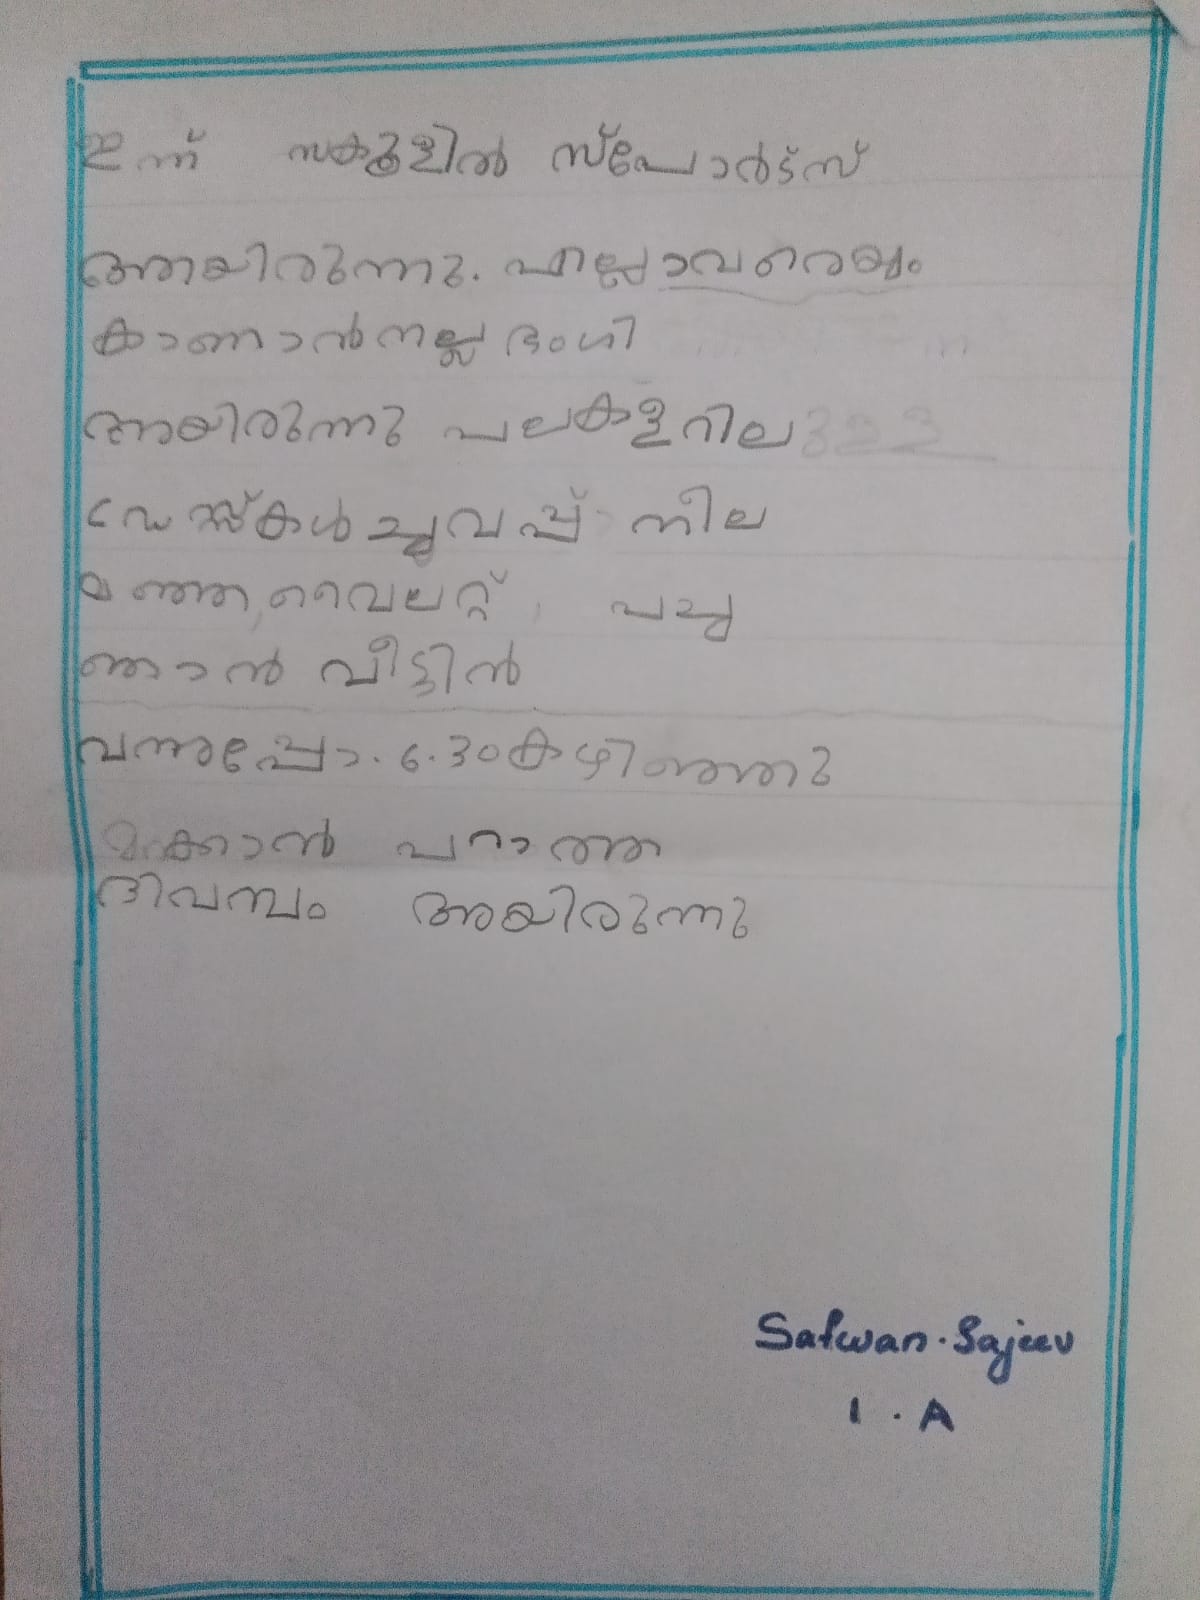 ഇന്ന് സകൂളിൽ സ്പോർട്സ്
ആയിരുന്നു. എല്ലാവരെയും
കാണാൻ നല്ല ഭംഗി
ആയിരുന്നു പലകളറില
ഡെസ്സ്കൾ ചുവപ്പ് നീല
മഞ്ഞ, വൈലറ്റ്, പച്ച
ഞാൻ വീട്ടിൻ
വന്നപ്പോ. 6.30 കഴിഞ്ഞു
പറാത്ത
ദിവസം ആയിരുന്നു
Safwan. Sajeev
1. A